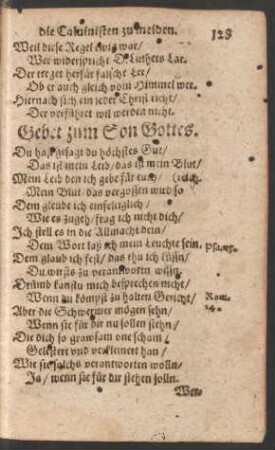 die Caluinisten zu meiden. 128
Weil diese Regel ewig war/
Wer widerspricht D. Luthers Lar.
Der treget herfür falsche Ler/
Ob er auch gleich vom Himmel wer.
Hiernach sich ein jeder Christ richt/
Der verführet wil werden nicht.
Gebet zum Son Gottes.
DU hast gesagt du höchstes Gut/
Das ist mein Leib/das ist mein Blut/
Mein Leib den ich gebe für euch/
Mein Blut/das vergossen wird
Dem gleube ich einfeltiglich/
Wie es zugeh/frag ich nicht dich/
Ich stell es in die Allmacht dein/
Dein Wort laß ich mein Leuchte sein.
Dem glaub ich fest/das thu ich
Du wirsts zu verantworten wissn.
Drumb kanstu mich besprechen nicht/
Wenn du kömpst zu halten Gericht/ Rom.
Aber die Schwermer mögen sehn/ 14.
Wenn sie für dir nu sollen stehn/
Die dich so grawsam one scham/
Gelestert vnd verkleinert han/
Wie sie solchs verantworten wolln/
Ja/wenn sie für dir stehen solln.
Wer-